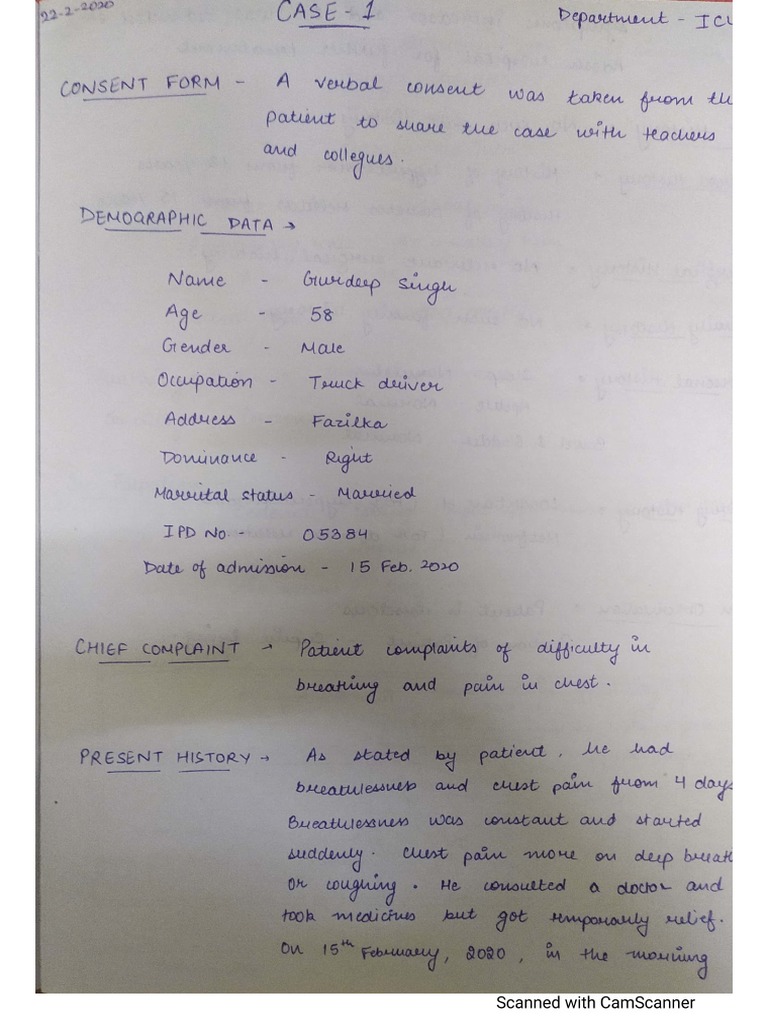 22-2-2020
CASE-1
Department - ICU
CONSENT FORM - A verbal consent was taken from the
patient to share the case with teachers
and collegues.
DEMOGRAPHIC DATA →
Name - Gurdeep Singh
Age - 58
Gender - Male
Occupation - Truck driver
Address - Fazilka
Dominance - Right
Marrital status - Married
IPD No. - 05384
Date of admission - 15 Feb. 2020
CHIEF COMPLAINT → Patient complaints of difficulty in
breathing and pain in chest.
PRESENT HISTORY → As stated by patient, he had
breathlessness and chest pain from 4 days
Breathlessness was constant and started
suddenly. Chest pain more on deep breath
or coughing. He consulted a doctor and
took medicines but got temporarily relief.
On 15th February, 2020, in the morning
Scanned with CamScanner